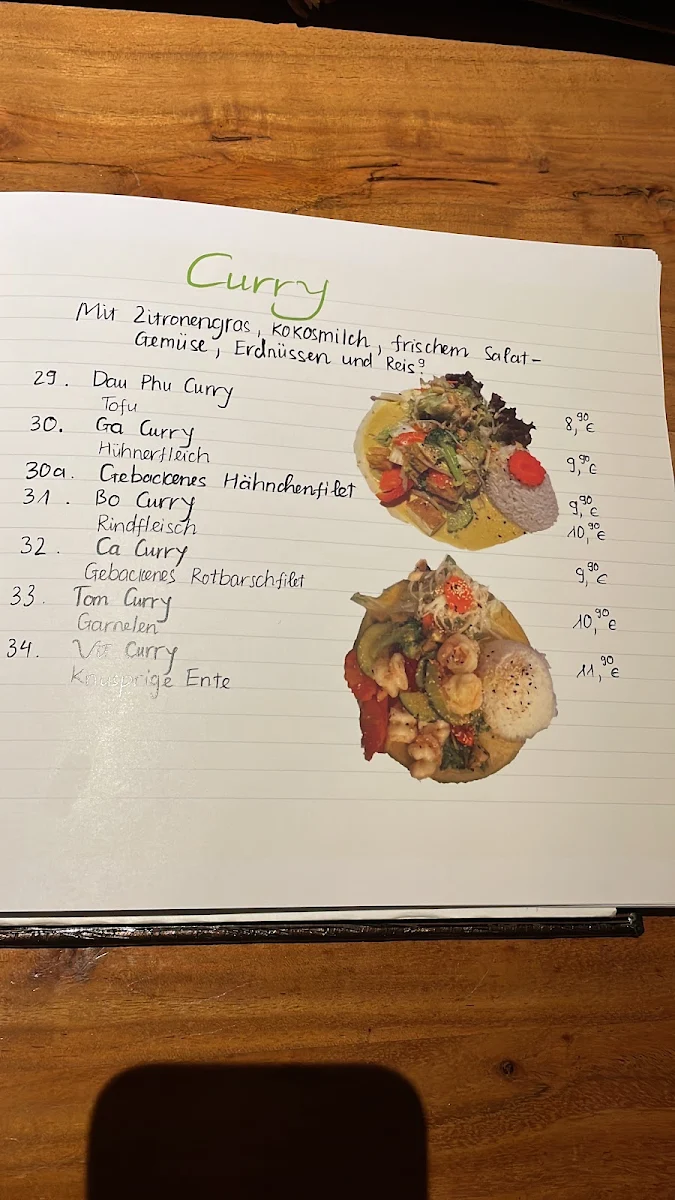 Curry
Mit Zitronengras, Kokosmilch, frischem Salat-
Gemüse, Erdnüssen und Reis⁹
29. Dau Phu Curry 8,⁹⁰€
Tofu
30. Ga Curry 9,⁹⁰€
Hühnerfleich
30a. Gebackenes Hähnchenfilet 9,⁹⁰€
31. Bo Curry 10,⁹⁰€
Rindfleisch
32. Ca Curry 9,⁹⁰€
Gebackenes Rotbarschfilet
33. Tom Curry 10,⁹⁰€
Garnelen
34. Vit Curry 11,⁹⁰€
Knusprige Ente